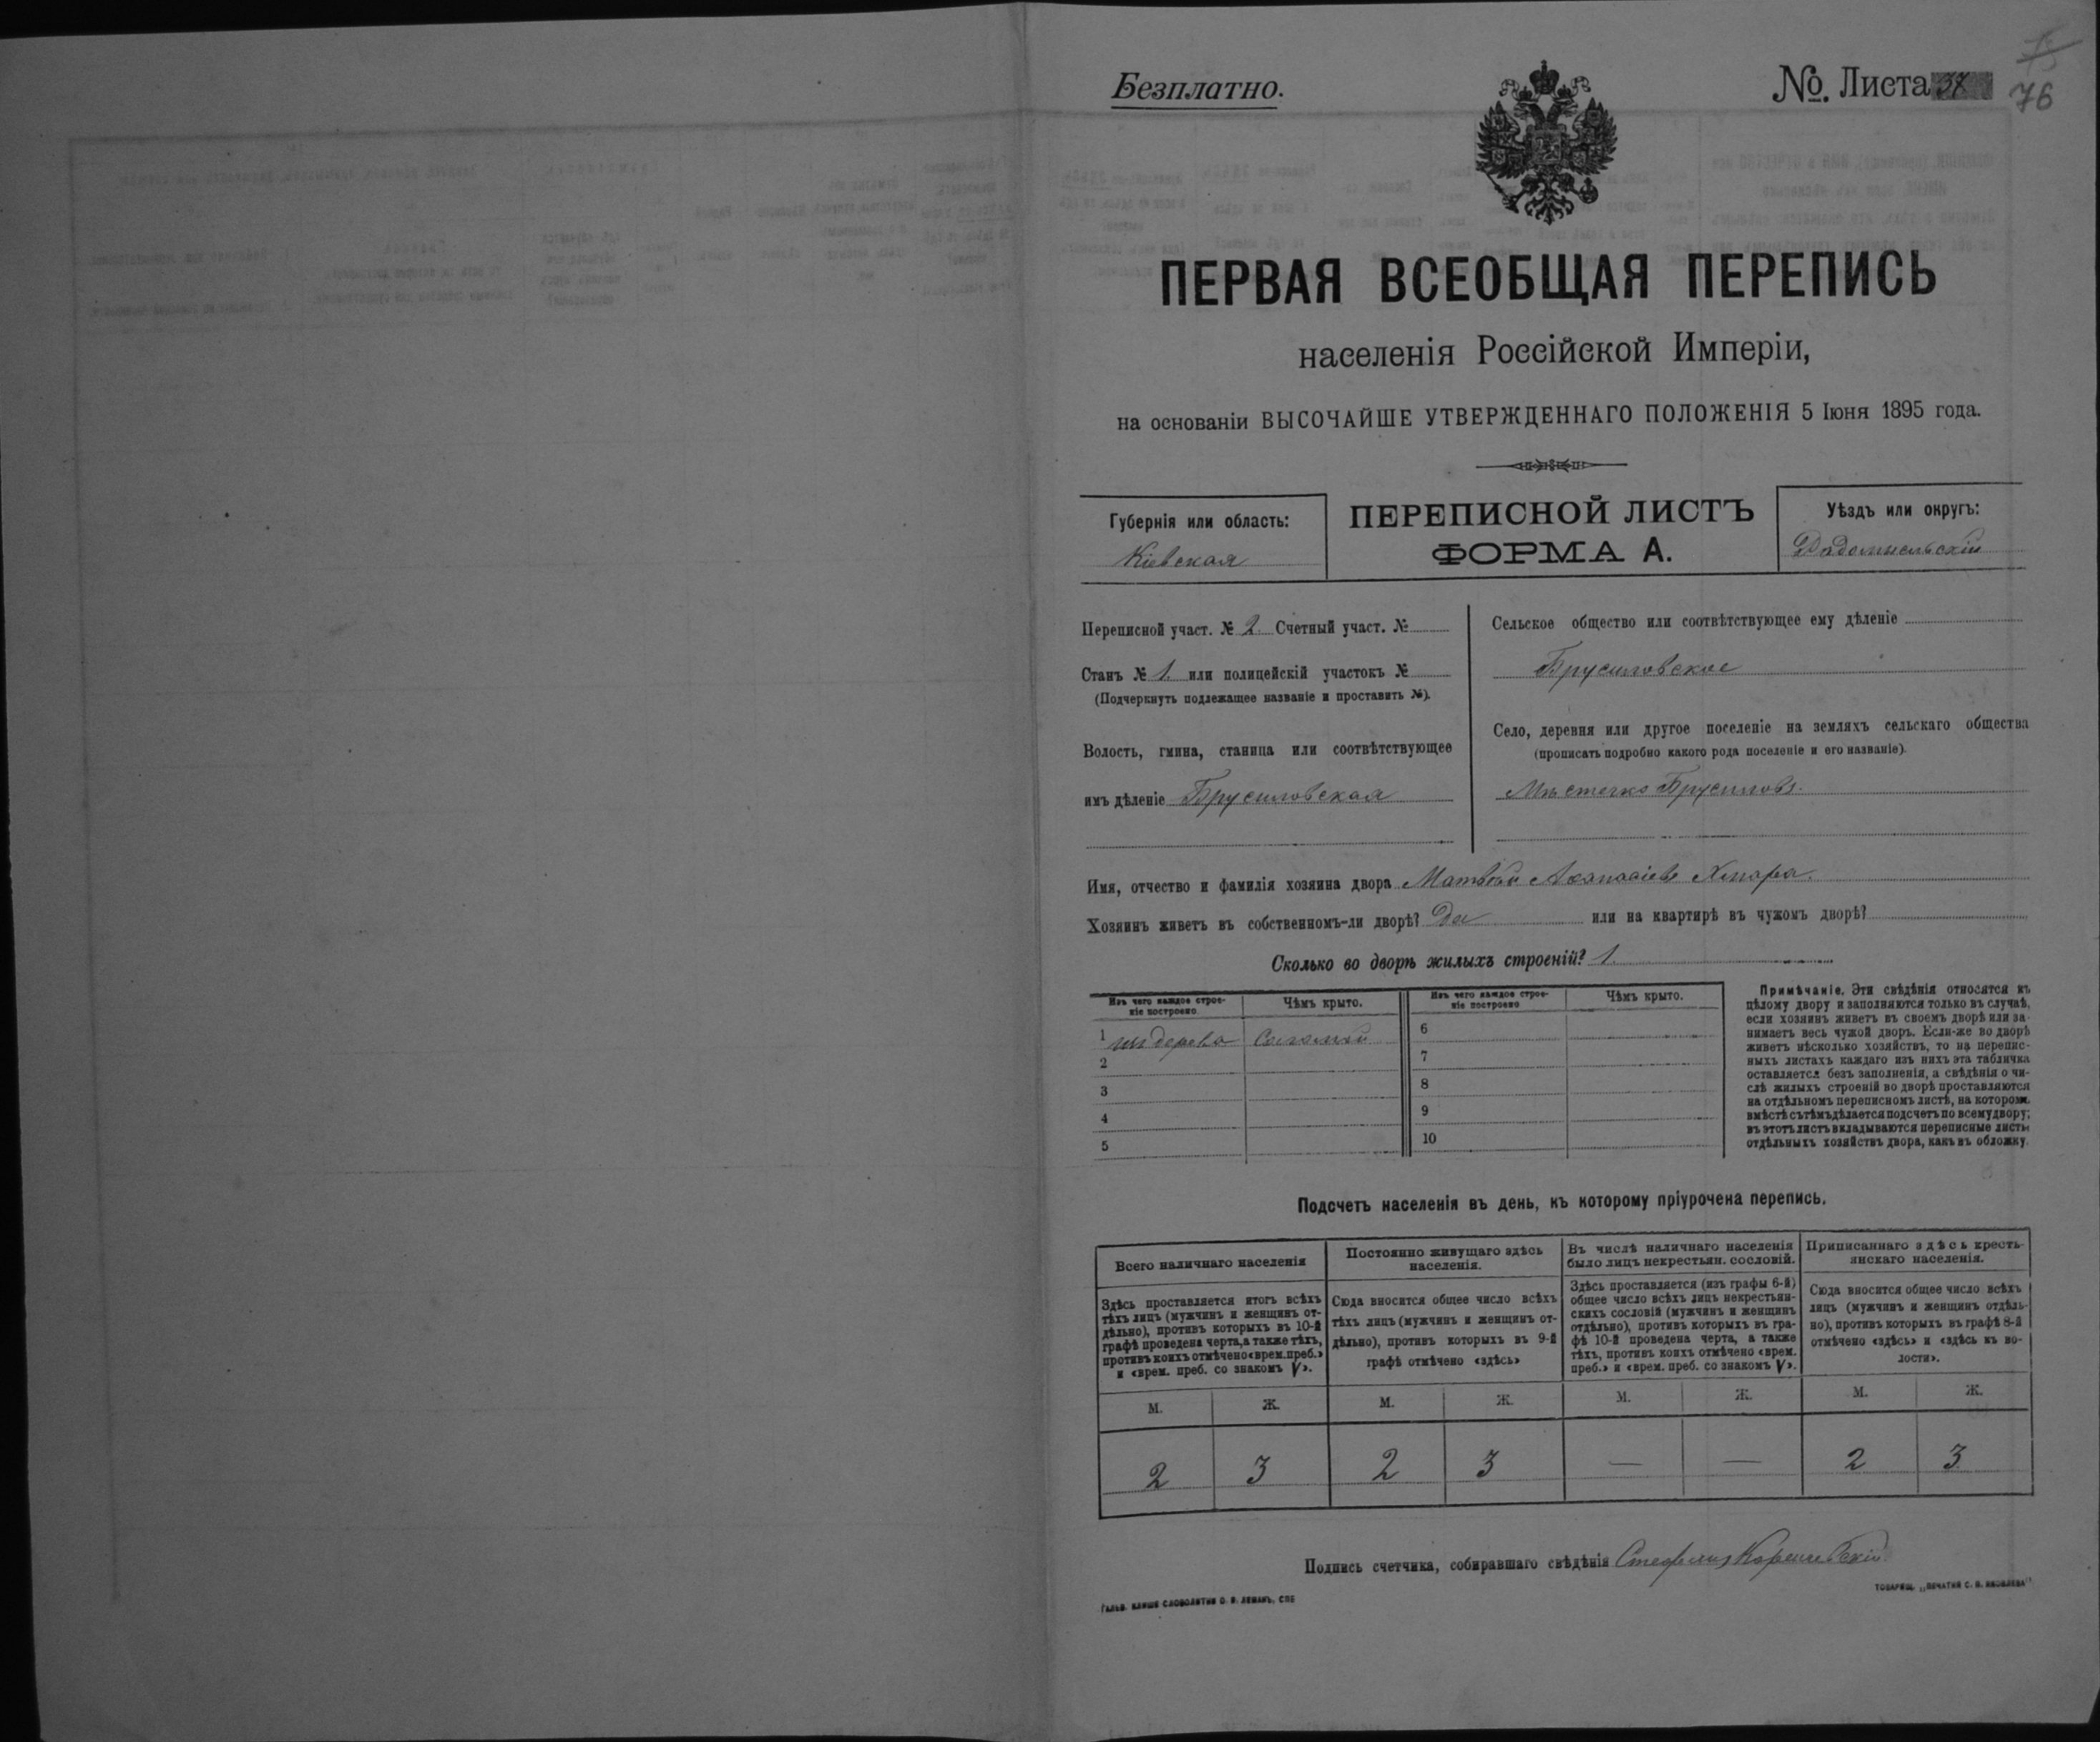 Безплатно.
№. Листа 38
76
ПЕРВАЯ ВСЕОБЩАЯ ПЕРЕПИСЬ
населенія Россійской Имперіи,
на основаніи ВЫСОЧАЙШЕ УТВЕРЖДЕННАГО ПОЛОЖЕНІЯ 5 Іюня 1895 года.
Губернія или область:
Кіевская
ПЕРЕПИСНОЙ ЛИСТЪ
ФОРМА А.
Уѣздъ или округъ:
Радомысльскій
Переписной участ. № 2. Счетный участ. №
Станъ № 1. или полицейскій участокъ №
(Подчеркнуть подлежащее названіе и проставить №).
Волость, гмина, станица или соотвѣтствующее
имъ дѣленіе Брусиловская
Сельское общество или соотвѣтствующее ему дѣленіе
Брусиловское
Село, деревня или другое поселеніе на земляхъ сельскаго общества
(прописать подробно какого рода поселеніе и его названіе).
Мѣстечко Брусиловъ.
Имя, отчество и фамилія хозяина двора Матвѣй Аѳанасіевъ Хмара.
Хозяинъ живетъ въ собственномъ-ли дворѣ? Да или на квартирѣ въ чужомъ дворѣ?
Сколько во дворѣ жилыхъ строеній? 1.
Изъ чего каждое строе-
ніе построено.
Чѣмъ крыто.
Изъ чего каждое строе-
ніе построено
Чѣмъ крыто.
1 изъ дерева Соломой
2
3
4
5
6
7
8
9
10
Примѣчаніе. Эти свѣдѣнія относятся къ
цѣлому двору и заполняются только въ случаѣ,
если хозяинъ живетъ въ своемъ дворѣ или за-
нимаетъ весь чужой дворъ. Если-же во дворѣ
живетъ нѣсколько хозяйствъ, то на перепис-
ныхъ листахъ каждаго изъ нихъ эта табличка
оставляется безъ заполненія, а свѣдѣнія о чи-
слѣ жилыхъ строеній во дворѣ проставляются
на отдѣльномъ переписномъ листѣ, на которомъ
вмѣстѣ съ тѣмъ дѣлается подсчетъ по всему двору;
въ этотъ листъ вкладываются переписные листы
отдѣльныхъ хозяйствъ двора, какъ въ обложку.
Подсчетъ населенія въ день, къ которому пріурочена перепись.
Всего наличнаго населенія
Постоянно живущаго здѣсь
населенія.
Въ числѣ наличнаго населенія
было лицъ некрестьян. сословій.
Приписаннаго здѣсь кресть-
янскаго населенія.
Здѣсь проставляется итогъ всѣхъ
тѣхъ лицъ (мужчинъ и женщинъ от-
дѣльно), противъ которыхъ въ 10-й
графѣ проведена черта, а также тѣхъ,
противъ коихъ отмѣчено «врем. преб.»
и «врем. преб. со знакомъ V».
Сюда вносится общее число всѣхъ
тѣхъ лицъ (мужчинъ и женщинъ от-
дѣльно), противъ которыхъ въ 9-й
графѣ отмѣчено «здѣсь»
Здѣсь проставляется (изъ графы 6-й)
общее число всѣхъ лицъ некрестьян-
скихъ сословій (мужчинъ и женщинъ
отдѣльно), противъ которыхъ въ гра-
фѣ 10-й проведена черта, а также
тѣхъ, противъ коихъ отмѣчено «врем.
преб.» и «врем. преб. со знакомъ V».
Сюда вносится общее число всѣхъ
лицъ (мужчинъ и женщинъ отдѣль-
но), противъ которыхъ въ графѣ 8-й
отмѣчено «здѣсь» и «здѣсь къ во-
лости».
М. Ж. М. Ж. М. Ж. М. Ж.
2 3 2 3 — — 2 3
Подпись счетчика, собиравшаго свѣдѣнія
Гальв. клише словолитни О. И. Леманъ, СПБ
Товарищ. „Печатня С. П. Яковлева“